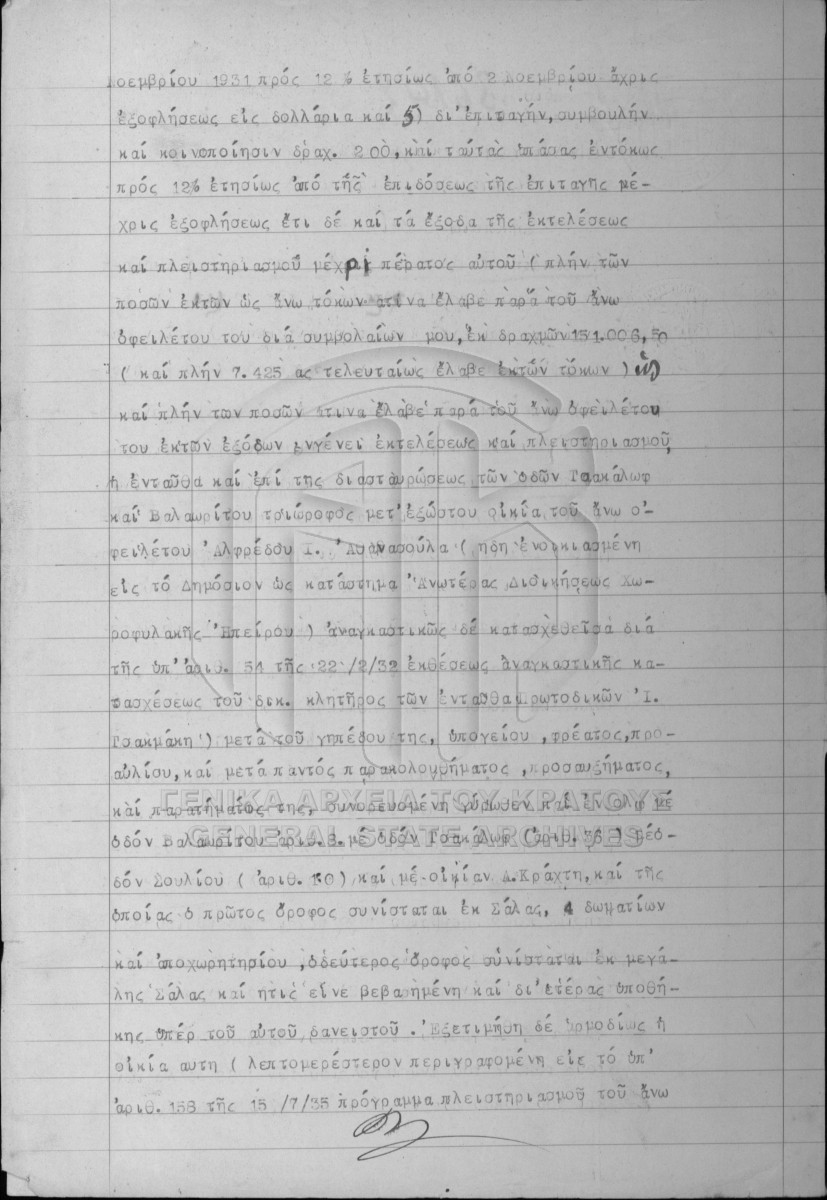 Νοεμβρίου 1931 πρός 12 % ἐτησίως ἀπό 2 Νοεμβρίου ἄχρις
ἐξοφλήσεως εἰς δολλάρια καί 5) δι'ἐπιταγήν, συμβουλήν
καί κοινοποίησιν δραχ. 200, καί ταύτας ἁπάσας ἐντόκως
πρός 12% ἐτησίως ἀπό τῆς ἐπιδόσεως τῆς ἐπιταγῆς μέ-
χρις ἐξοφλήσεως ἔτι δέ καί τά ἔξοδα τῆς ἐκτελέσεως
καί πλειστηριασμοῦ μέχρι πέρατος αὐτοῦ ( πλήν τῶν
ποσῶν ἐκτῶν ὡς ἄνω τόκων ἅτινα ἔλαβε παρά τοῦ ἄνω
ὀφειλέτου του διά συμβολαίων μου, ἐκ δραχμῶν 151.006,50
( καί πλήν 7.425 ας τελευταίως ἔλαβε ἐκτῶν τόκων ) ὡς
καί πλήν των ποσῶν ἅτινα ἔλαβε παρά τοῦ ἄνω ὀφειλέτου
του ἐκτῶν ἐξόδων ἐνγένει ἐκτελέσεως καί πλειστηριασμοῦ,
ἡ ἐνταῦθα καί ἐπί της διασταυρώσεως τῶν ὁδῶν Τσακάλωφ
καί Βαλαωρίτου τριώροφος μετ'ἐξώστου οἰκία τοῦ ἄνω ὀ-
φειλέτου Ἀλφρέδου Ι. Ἀσανασούλα ( ηδη ἐνοικιασμένη
εἰς τό Δημόσιον ὡς κατάστημα Ἀνωτέρας Διοικήσεως Χω-
ροφυλακῆς Ἠπείρου ) ἀναγκαστικῶς δέ κατασχεθεῖσα διά
τῆς ὑπ'ἀριθ. 54 τῆς 22 /2/32 ἐκθέσεως ἀναγκαστικῆς κα-
τασχέσεως τοῦ δικ. κλητῆρος τῶν ἐνταῦθα Πρωτοδικῶν Ἰ.
Τσακμάκη ) μετά τοῦ γηπέδου της, ὑπογείου , φρέατος, προ-
αυλίου, καί μετά παντός παρακολουθήματος , προσαυξήματος,
καί παραρτήματός της, συνορευομένη γύρωθεν καί ἐν ὅλῳ μέ
ὁδόν Βαλαωρίτου ἀριθ. 8. μέ ὁδόν Τσακάλωφ (ἀριθ. 36 ) μέ ὁ-
δόν Σουλίου ( ἀριθ. 10) καί μέ οἰκίαν Δ. Κράχτη, καί τῆς
ὁποίας ὁ πρῶτος ὄροφος συνίσταται ἐκ Σάλας, 4 δωματίων
καί ἀποχωρητηρίου , ὁ δεύτερος ὄροφος συνίσταται ἐκ μεγά-
λης Σάλας καί ἥτις εἶνε βεβαρημένη καί δι'ἑτέρας ὑποθή-
κης ὑπέρ τοῦ αὐτοῦ δανειστοῦ . Ἐξετιμήθη δέ ἁρμοδίως ἡ
οἰκία αυτη ( λεπτομερέστερον περιγραφομένη εἰς τό ὑπ'
ἀριθ. 158 τῆς 15 /7/35 πρόγραμμα πλειστηριασμοῦ τοῦ ἄνω
ΓΕΝΙΚΑ ΑΡΧΕΙΑ ΤΟΥ ΚΡΑΤΟΥΣ
GENERAL STATE ARCHIVES